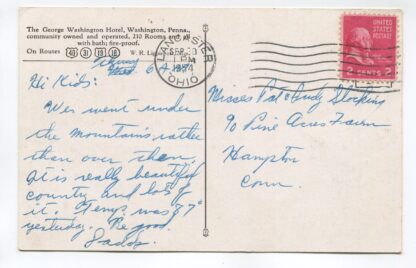 The George Washington Hotel, Washington, Penna.,
community owned and operated, 210 Rooms
with bath; fire-proof.
On Routes 40 31 19 18 W. R.
LANCASTER
SEP 30
PM
1954
OHIO
UNITED STATES POSTAGE
2 CENTS 2
Hi Kids:
We's went under
the Mountains rather
than over them.
It is really beautiful
county and lots of
it. Temp was 77°
yesterday. Be good.
Dadd.
Misses Pat & Judy Stocking
90 Pine Acres Farm
Hampton
Conn.